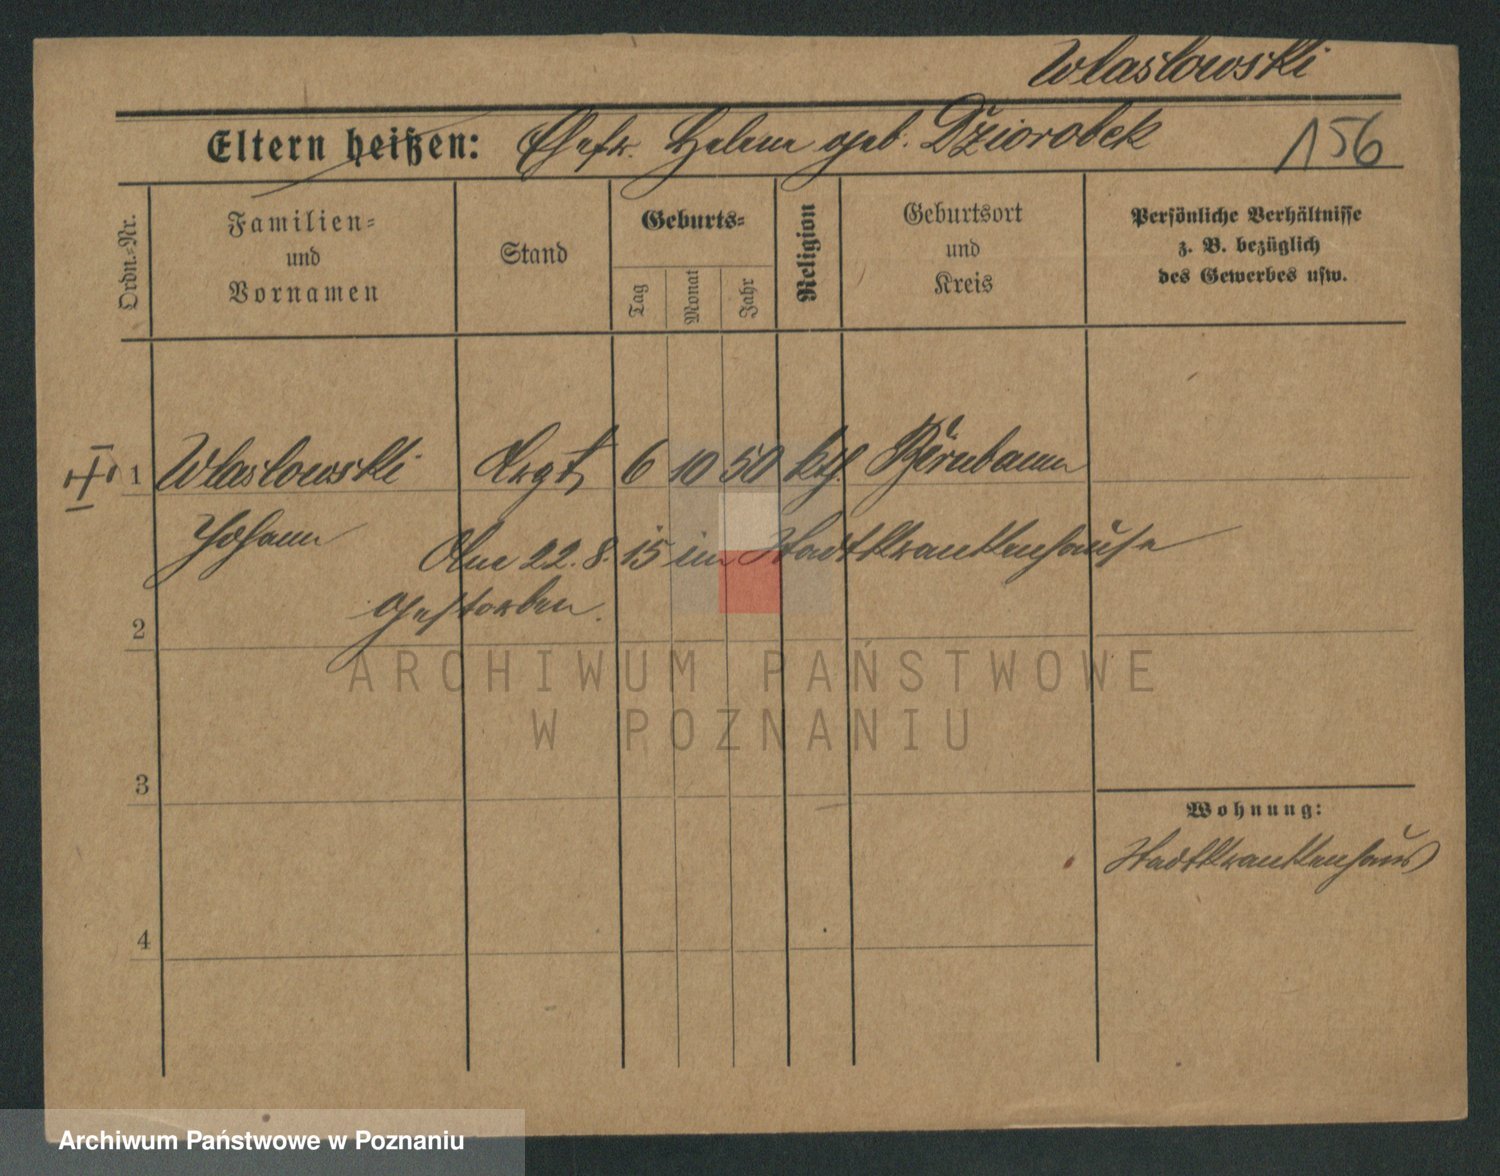 Wlaslowski
Eltern heißen: Ehefr. Helene geb. Dziorobek
156
Ordn.-Nr.
Familien-
und
Vornamen
Stand
Geburts-
Tag
Monat
Jahr
Religion
Geburtsort
und
Kreis
Persönliche Verhältnisse
z. B. bezüglich
des Gewerbes usw.
1 Wlaslowski 6 10 50 kth. Birnbaum
Johann
Am 22. 8. 15 im Stadtkrankenhause
gestorben.
2
ARCHIWUM PAŃSTWOWE
W POZNANIU
3
Wohnung:
Stadtkrankenhaus
4
Archiwum Państwowe w Poznaniu